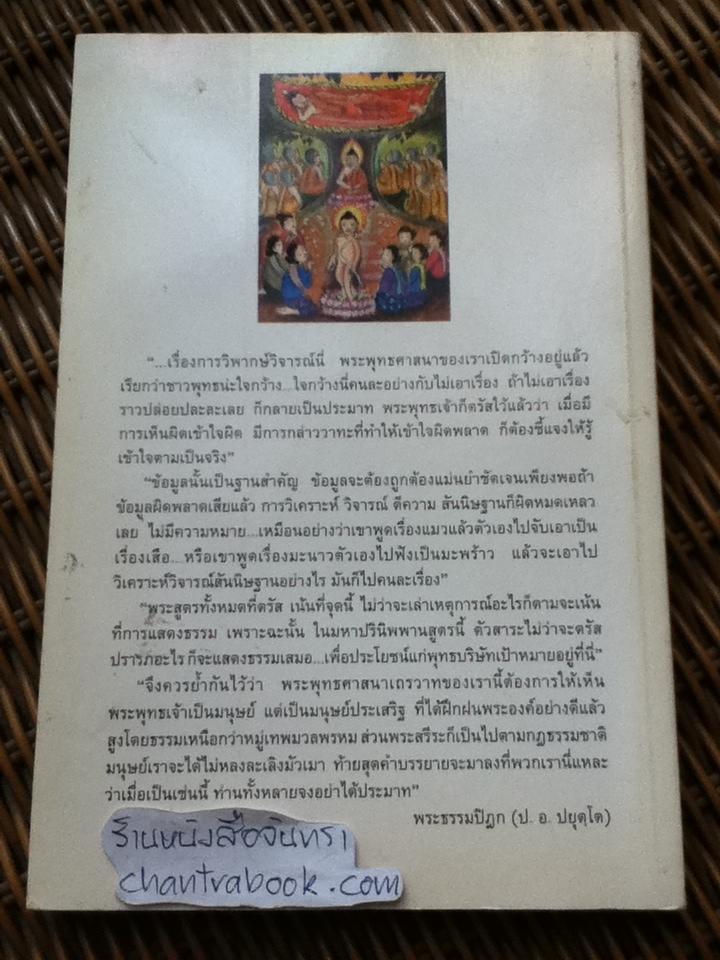 “...เรื่องการวิพากษ์วิจารณ์นี่ พระพุทธศาสนาของเราเปิดกว้างอยู่แล้ว
เรียกว่าชาวพุทธน่ะใจกว้าง...ใจกว้างนี่คนละอย่างกับไม่เอาเรื่อง ถ้าไม่เอาเรื่อง
ราวปล่อยปละละเลย ก็กลายเป็นประมาท พระพุทธเจ้าก็ตรัสไว้แล้วว่า เมื่อมี
การเห็นผิดเข้าใจผิด มีการกล่าววาทะที่ทำให้เข้าใจผิดพลาด ก็ต้องชี้แจงให้รู้
เข้าใจตามเป็นจริง”
“ข้อมูลนั้นเป็นฐานสำคัญ ข้อมูลจะต้องถูกต้องแม่นยำชัดเจนเพียงพอถ้า
ข้อมูลผิดพลาดเสียแล้ว การวิเคราะห์ วิจารณ์ ตีความ สันนิษฐานก็ผิดหมดเหลว
เลย ไม่มีความหมาย...เหมือนอย่างว่าเขาพูดเรื่องแมวแล้วตัวเองไปจับเอาเป็น
เรื่องเสือ...หรือเขาพูดเรื่องมะนาวตัวเองไปฟังเป็นมะพร้าว แล้วจะเอาไป
วิเคราะห์วิจารณ์สันนิษฐานอย่างไร มันก็ไปคนละเรื่อง”
“พระสูตรทั้งหมดที่ตรัส เน้นที่จุดนี้ ไม่ว่าจะเล่าเหตุการณ์อะไรก็ตามจะเน้น
ที่การแสดงธรรม เพราะฉะนั้น ในมหาปรินิพพานสูตรนี้ ตัวสาระไม่ว่าจะตรัส
ปรารภอะไร ก็จะแสดงธรรมเสมอ...เพื่อประโยชน์แก่พุทธบริษัทเป้าหมายอยู่ที่นี่”
“จึงควรย้ำกันไว้ว่า พระพุทธศาสนาเถรวาทของเรานี้ต้องการให้เห็น
พระพุทธเจ้าเป็นมนุษย์ แต่เป็นมนุษย์ประเสริฐ ที่ได้ฝึกฝนพระองค์อย่างดีแล้ว
สูงโดยธรรมเหนือกว่าหมู่เทพมวลพรหม ส่วนพระสรีระก็เป็นไปตามกฎธรรมชาติ
มนุษย์เราจะได้ไม่หลงละเลิงมัวเมา ท้ายสุดคำบรรยายจะมาลงที่พวกเรานี่แหละ
ว่าเมื่อเป็นเช่นนี้ ท่านทั้งหลายจงอย่าได้ประมาท”
พระธรรมปิฎก (ป. อ. ปยุตฺโต)
ร้านหนังสือจันทรา
chantrabook.com